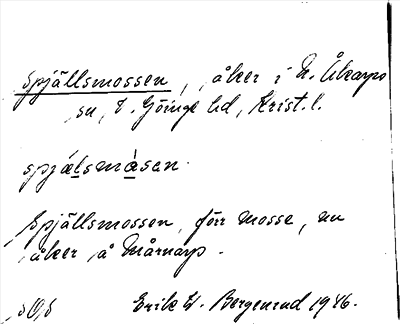 Spjällsmossen, åker i N. Åkarps
sn, V. Göinge hd, Krist. l.
spjælsmåsan.
Spjällsmossen, förr mosse, nu
åker å Mårnarp.
Erik W. Bergenrud 1946.